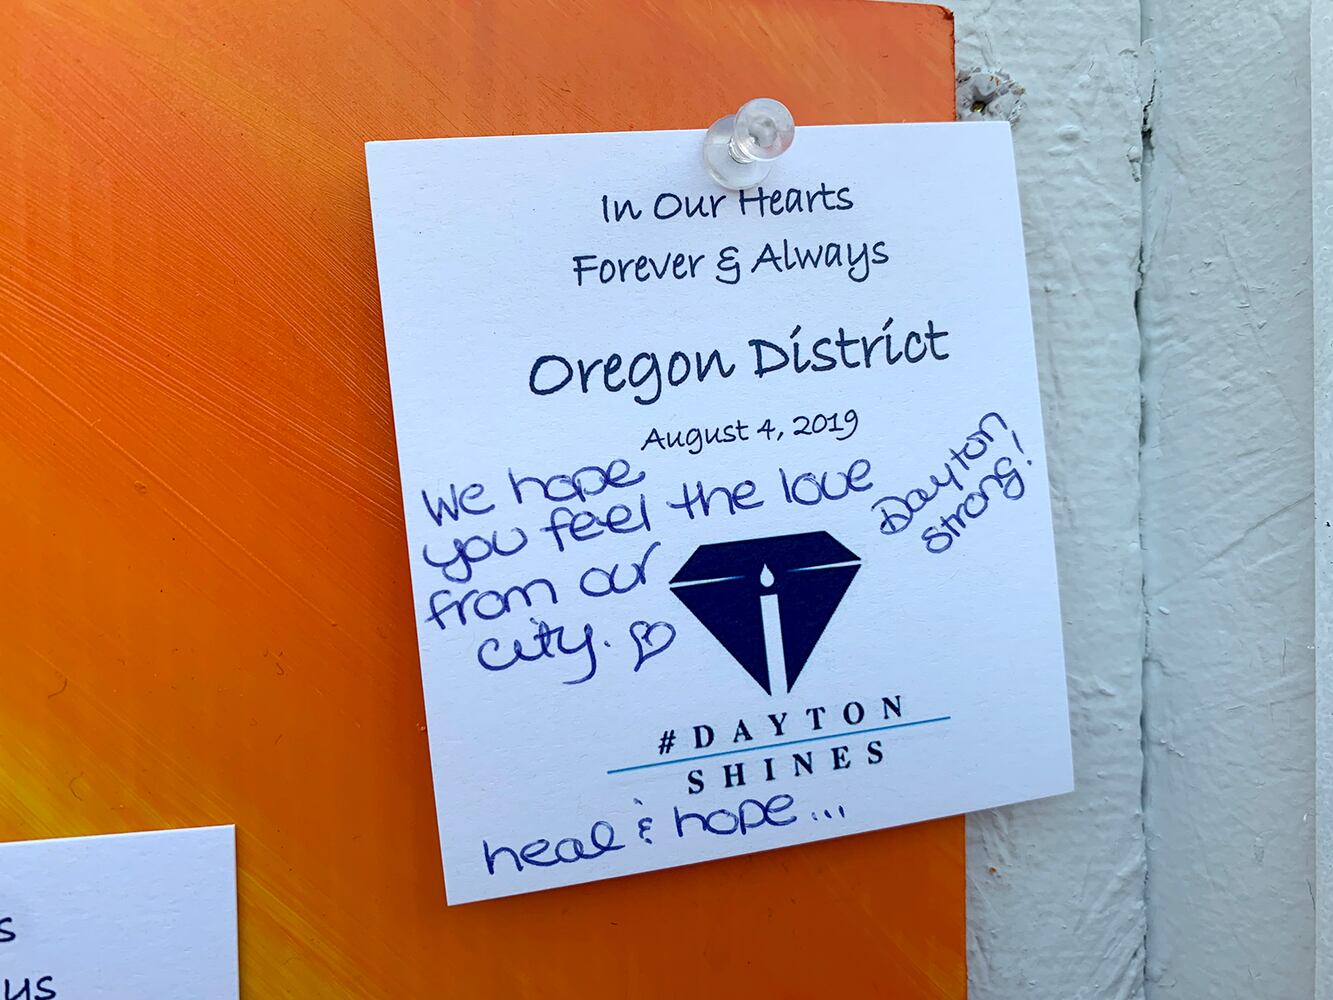 In Our Hearts
Forever & Always
Oregon District
August 4, 2019
We hope
you feel the love
from our
city.
Dayton
strong!
#DAYTON
SHINES
heal & hope...
s
us